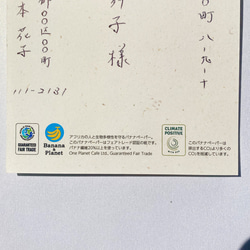 〇町 八ー九ー十
子様
都〇〇区〇〇町
本花子
111-2131
GUARANTEED
FAIR TRADE
Banana
Planet
アフリカの人と生物多様性を守るバナナペーパー。
このバナナペーパーはフェアトレード認証の紙です。
バナナ繊維20%以上を使っています。
One Planet Café Ltd., Guaranteed Fair Trade
CLIMATE
POSITIVE
このバナナペーパーは
排出するCO₂より多くの
CO₂を削減しています。